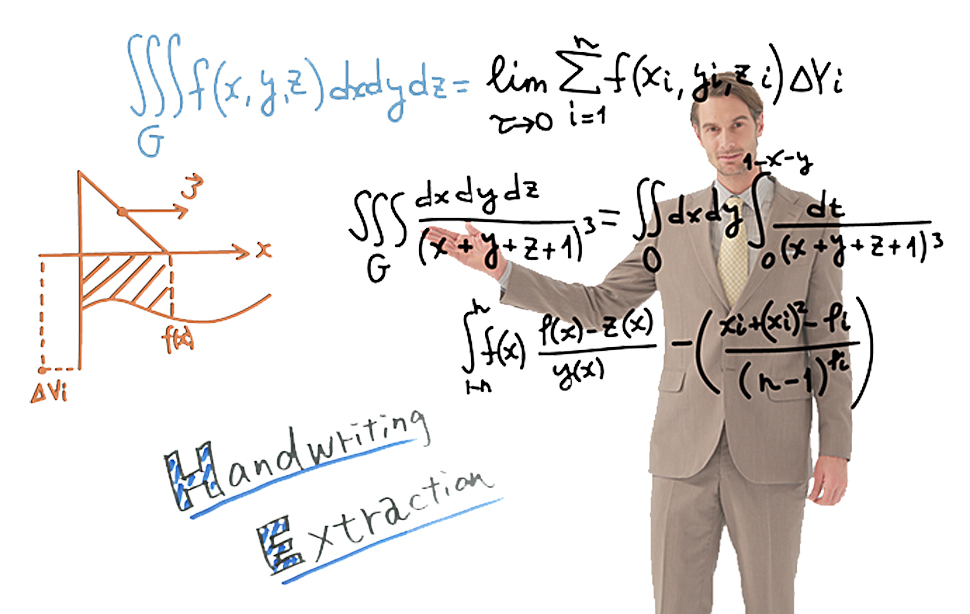 ∭_G f(x, y, z) dxdydz = lim_{τ→0} ∑_{i=1}^{n} f(xi, yi, zi) ΔVi
ω
x
f(x)
ΔVi
∭_G dxdydz/(x+y+z+1)^3 = ∬_0 dxdy ∫_0^{1-x-y} dt/(x+y+z+1)^3
∫_{1-n}^{n} f(x) (f(x)-z(x))/y(x) - ((xi+(xi)^2-fi)/(n-1)^{fi})
Handwriting
Extraction